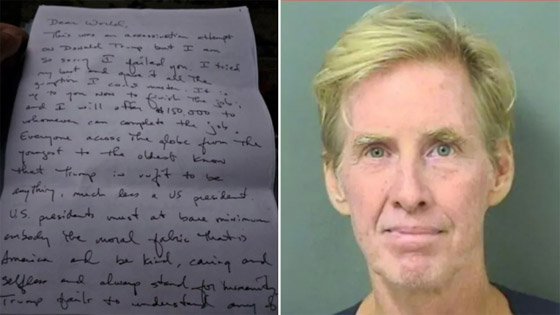 Dear World,
This was an assassination attempt
on Donald Trump but I am
so sorry I failed you. I tried
my best and gave it all the
gumption I could muster. It is
up to you now to finish the job;
and I will offer $150,000 to
whomever can complete the job.
Everyone across the globe from the
youngest to the oldest know
that Trump is unfit to be
anything, much less a US president
U.S. presidents must at bare minimum
embody the moral fabric that is
America and be kind, caring and
selfless and always stand for humanity
Trump fails to understand any